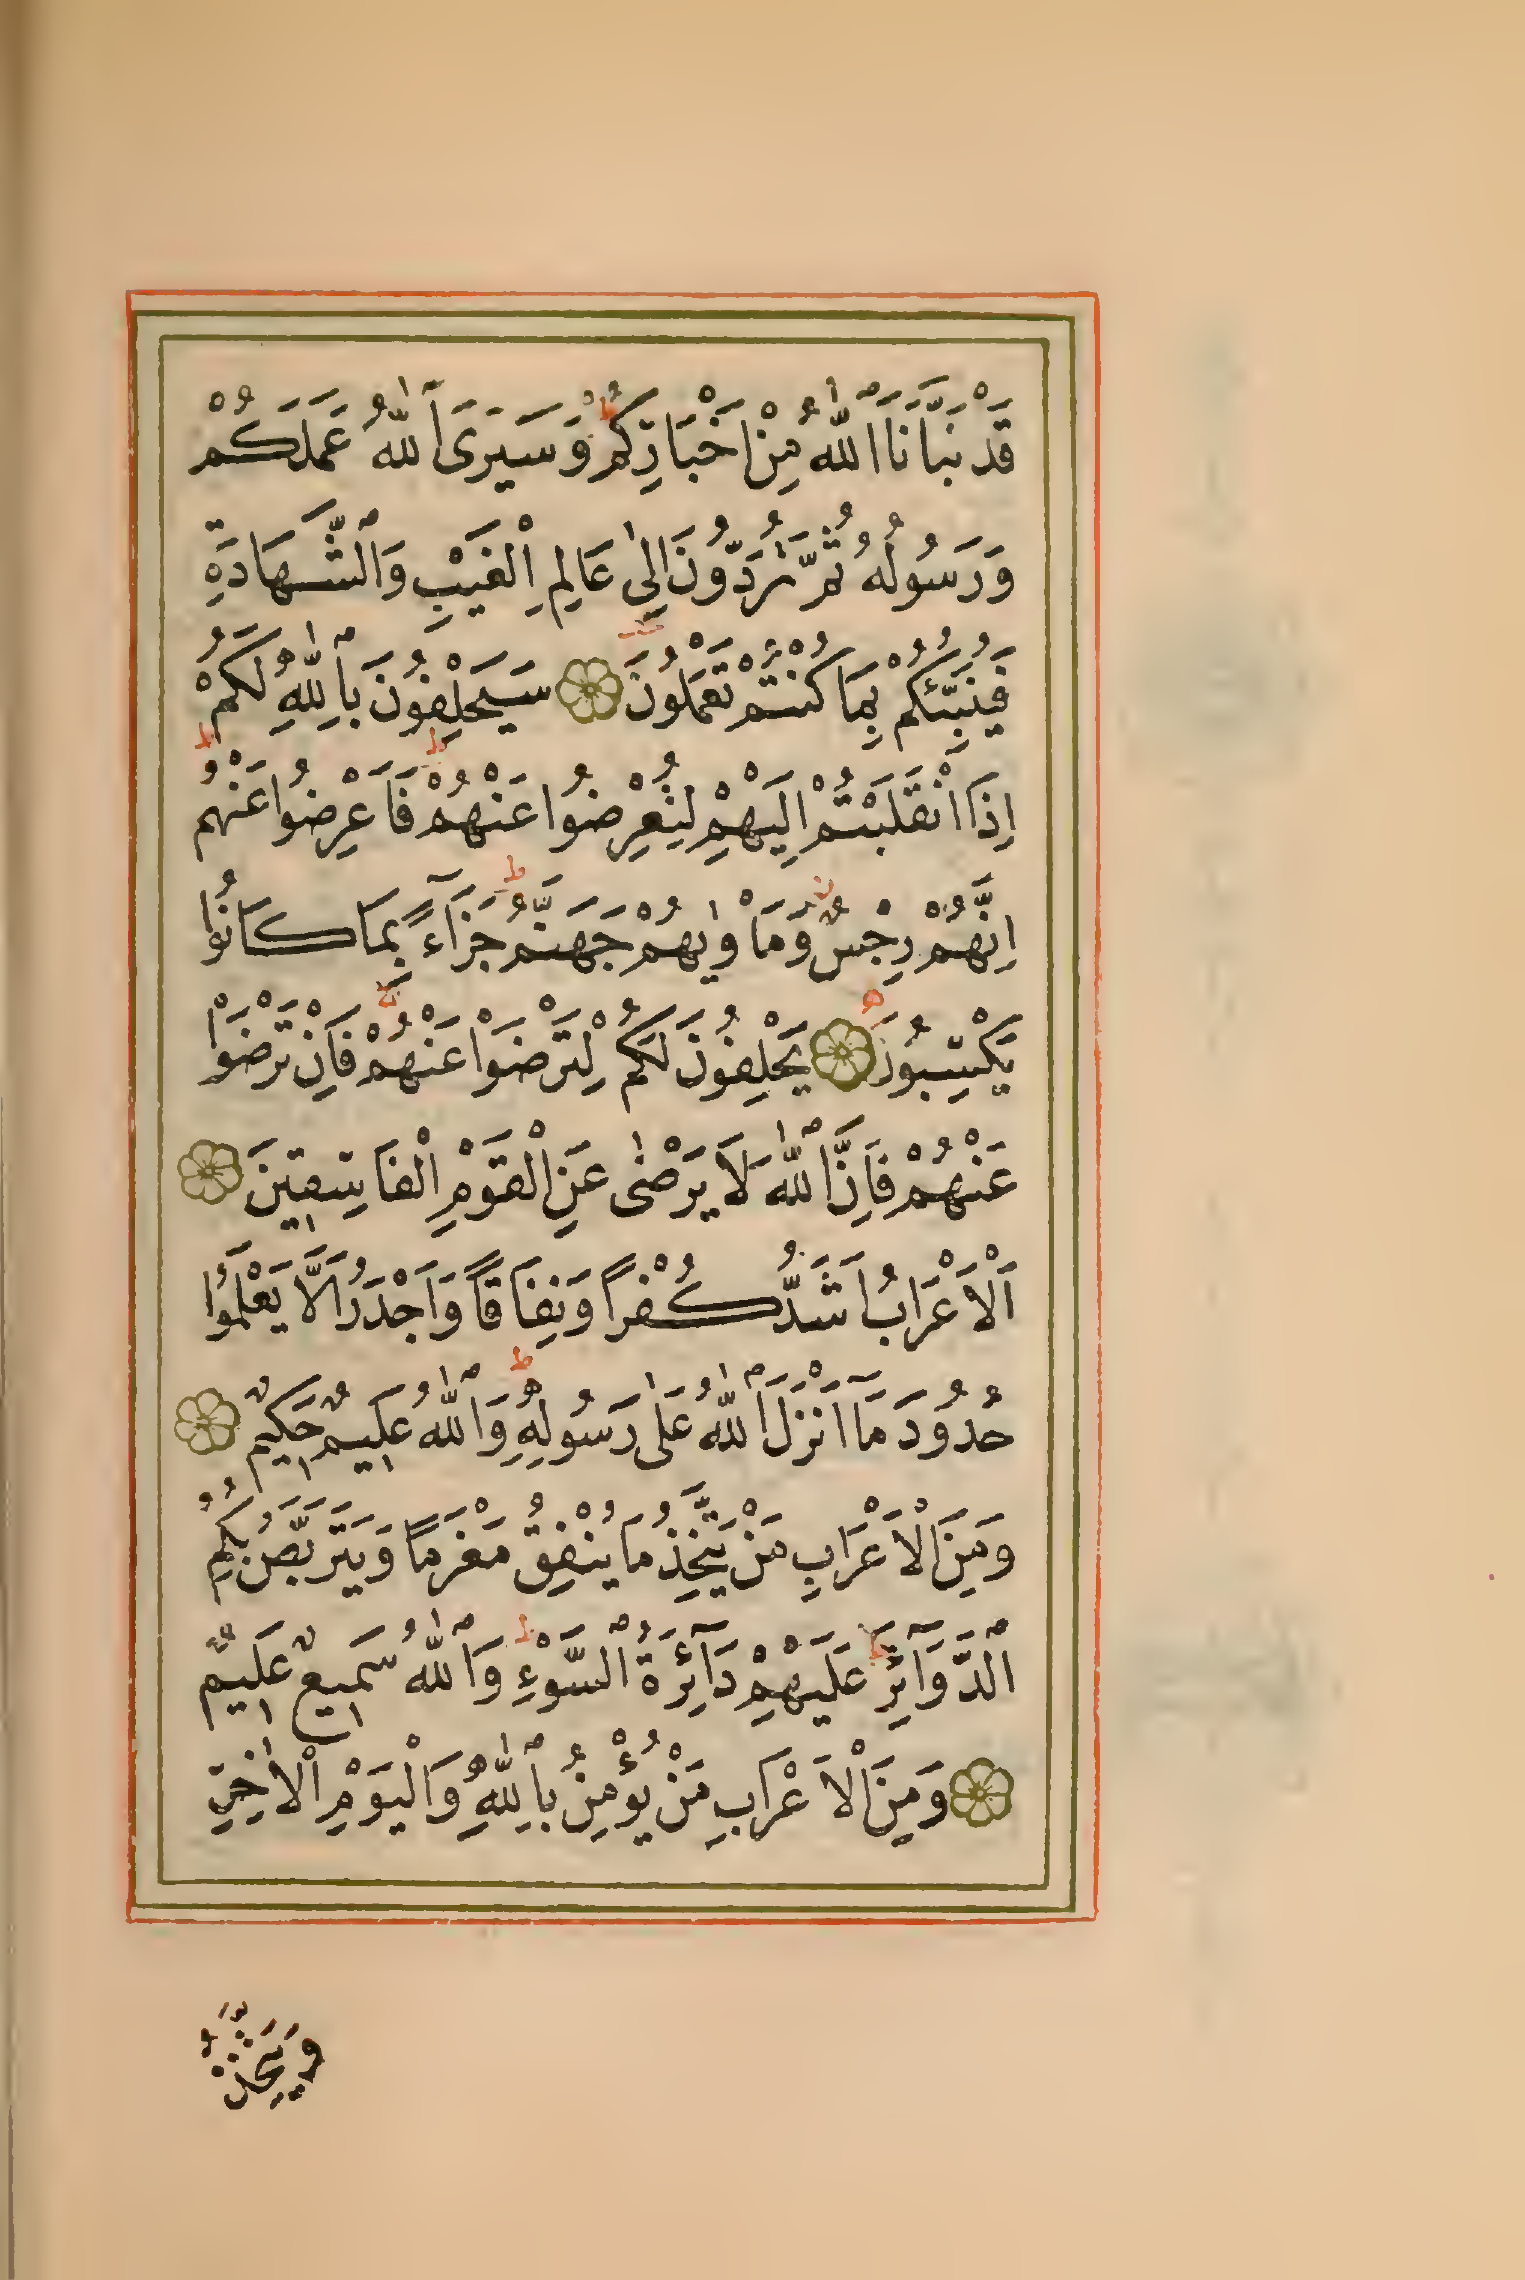 قَدْ نَبَّاَنَا اللّٰهُ مِنْ اَخْبَارِكُمْ ط وَسَيَرَى اللّٰهُ عَمَلَكُمْ
وَرَسُولُهُ ثُمَّ تُرَدُّونَ اِلٰى عَالِمِ الْغَيْبِ وَالشَّهَادَةِ
فَيُنَبِّئُكُمْ بِمَا كُنْتُمْ تَعْمَلُونَ سَيَحْلِفُونَ بِاللّٰهِ لَكُمْ
اِذَا انْقَلَبْتُمْ اِلَيْهِمْ لِتُعْرِضُوا عَنْهُمْ ط فَاَعْرِضُوا عَنْهُمْ ط
اِنَّهُمْ رِجْسٌ وَمَاْوٰيهُمْ جَهَنَّمُ ط جَزَآءً بِمَا كَانُوا
يَكْسِبُونَ يَحْلِفُونَ لَكُمْ لِتَرْضَوْا عَنْهُمْ ج فَاِنْ تَرْضَوْا
عَنْهُمْ فَاِنَّ اللّٰهَ لَا يَرْضٰى عَنِ الْقَوْمِ الْفَاسِقٖينَ
اَلْاَعْرَابُ اَشَدُّ كُفْرًا وَنِفَاقًا وَاَجْدَرُ اَلَّا يَعْلَمُوا
حُدُودَ مَآ اَنْزَلَ اللّٰهُ عَلٰى رَسُولِهِ ط وَاللّٰهُ عَلٖيمٌ حَكٖيمٌ
وَمِنَ الْاَعْرَابِ مَنْ يَتَّخِذُ مَا يُنْفِقُ مَغْرَمًا وَيَتَرَبَّصُ بِكُمُ
الدَّوَآئِرَ ط عَلَيْهِمْ دَآئِرَةُ السَّوْءِ ط وَاللّٰهُ سَمٖيعٌ عَلٖيمٌ
وَمِنَ الْاَعْرَابِ مَنْ يُؤْمِنُ بِاللّٰهِ وَالْيَوْمِ الْاٰخِرِ
وَيَتَّخِذُ